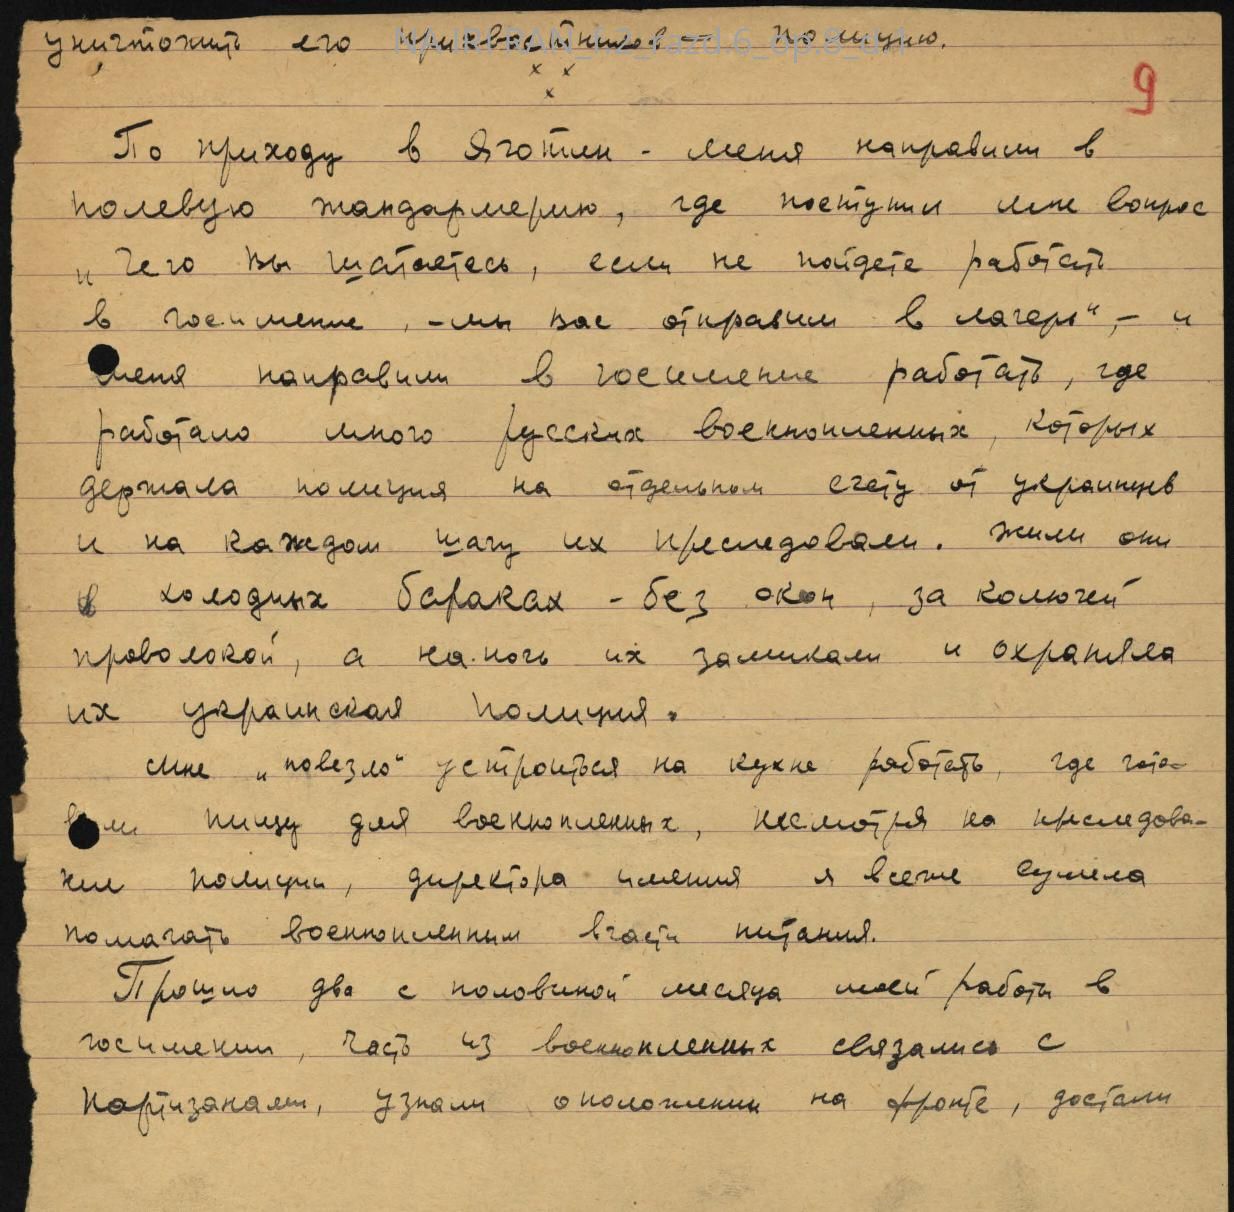 уничтожить его прихвостников — полицию.
9
По приходу в Яготин - меня направили в
полевую жандармерию, где поступил мне вопрос
„Чего вы шатаетесь, если не пойдете работать
в госимение, - мы вас отправим в лагерь“, - и
меня направили в госимение работать, где
работало много русских военнопленных, которых
держала полиция на отдельном счету от украинцев
и на каждом шагу их преследовали. Жили они
в холодных бараках - без окон, за колючей
проволокой, а на ночь их замикали и охраняла
их украинская полиция.
Мне „повезло“ устроиться на кухне работать, где гото-
вили пищу для военнопленных, несмотря на преследова-
ние полиции, директора имения я всеже сумела
помагать военнопленным вчасти питания.
Прошло два с половиной месяца моей работы в
госимении, часть из военнопленных связались с
партизанами, узнали о положении на фронте, достали